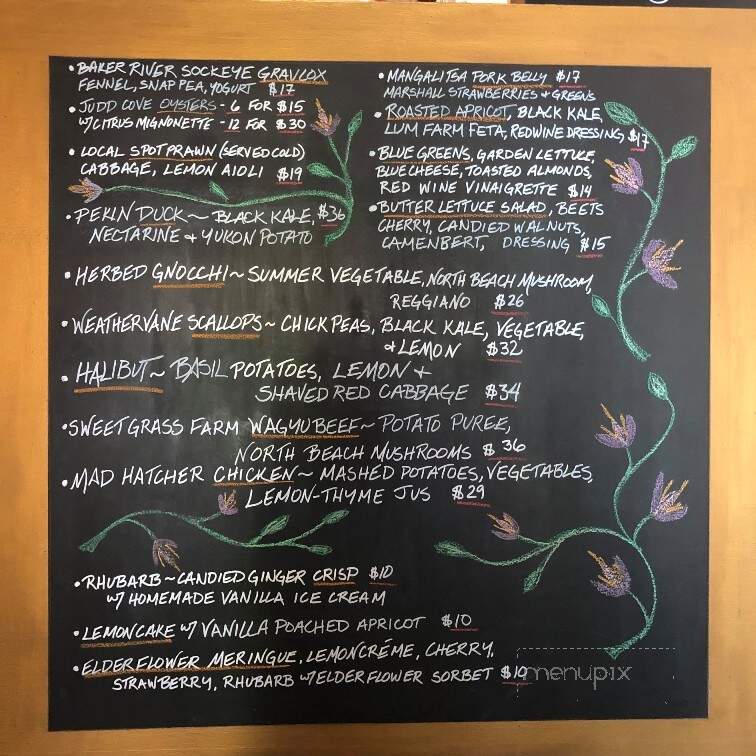 •BAKER RIVER SOCKEYE GRAVLOX
FENNEL, SNAP PEA, YOGURT $17
•JUDD COVE OYSTERS - 6 FOR $15
W/CITRUS MIGNONETTE - 12 FOR $30
•LOCAL SPOT PRAWN (SERVED COLD)
CABBAGE, LEMON AIOLI $19
•PEKIN DUCK~ BLACK KALE, $36
NECTARINE + YUKON POTATO
•MANGALITSA PORK BELLY $17
MARSHALL STRAWBERRIES + GREENS
•ROASTED APRICOT, BLACK KALE,
LUM FARM FETA, RED WINE DRESSING $17
•BLUE GREENS, GARDEN LETTUCE,
BLUE CHEESE, TOASTED ALMONDS,
RED WINE VINAIGRETTE $14
•BUTTER LETTUCE SALAD, BEETS
CHERRY, CANDIED WALNUTS,
CAMENBERT, DRESSING $15
•HERBED GNOCCHI~ SUMMER VEGETABLE, NORTH BEACH MUSHROOM,
REGGIANO $26
•WEATHERVANE SCALLOPS~ CHICK PEAS, BLACK KALE, VEGETABLE,
+ LEMON $32
•HALIBUT~ BASIL POTATOES, LEMON +
SHAVED RED CABBAGE $34
•SWEETGRASS FARM WAGYU BEEF~ POTATO PUREE,
NORTH BEACH MUSHROOMS $36
•MAD HATCHER CHICKEN~ MASHED POTATOES, VEGETABLES,
LEMON-THYME JUS $29
•RHUBARB~CANDIED GINGER CRISP $10
W/ HOMEMADE VANILLA ICE CREAM
•LEMONCAKE W/ VANILLA POACHED APRICOT $10
•ELDERFLOWER MERINGUE, LEMONCRÉME, CHERRY,
STRAWBERRY, RHUBARB W/ELDERFLOWER SORBET $10
menupix